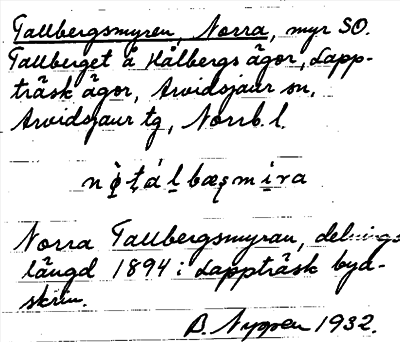 Tallbergsmyren, Norra, myr SO.
Tallberget å Hålbergs ägor, Lapp-
träsk ägor, Arvidsjaur sn,
Arvidsjaur tg, Norrb. l.
Norra Tallbergsmyran, delnings
längd 1894 i Lappträsk byd-
skrin.
B. Nygren 1932.